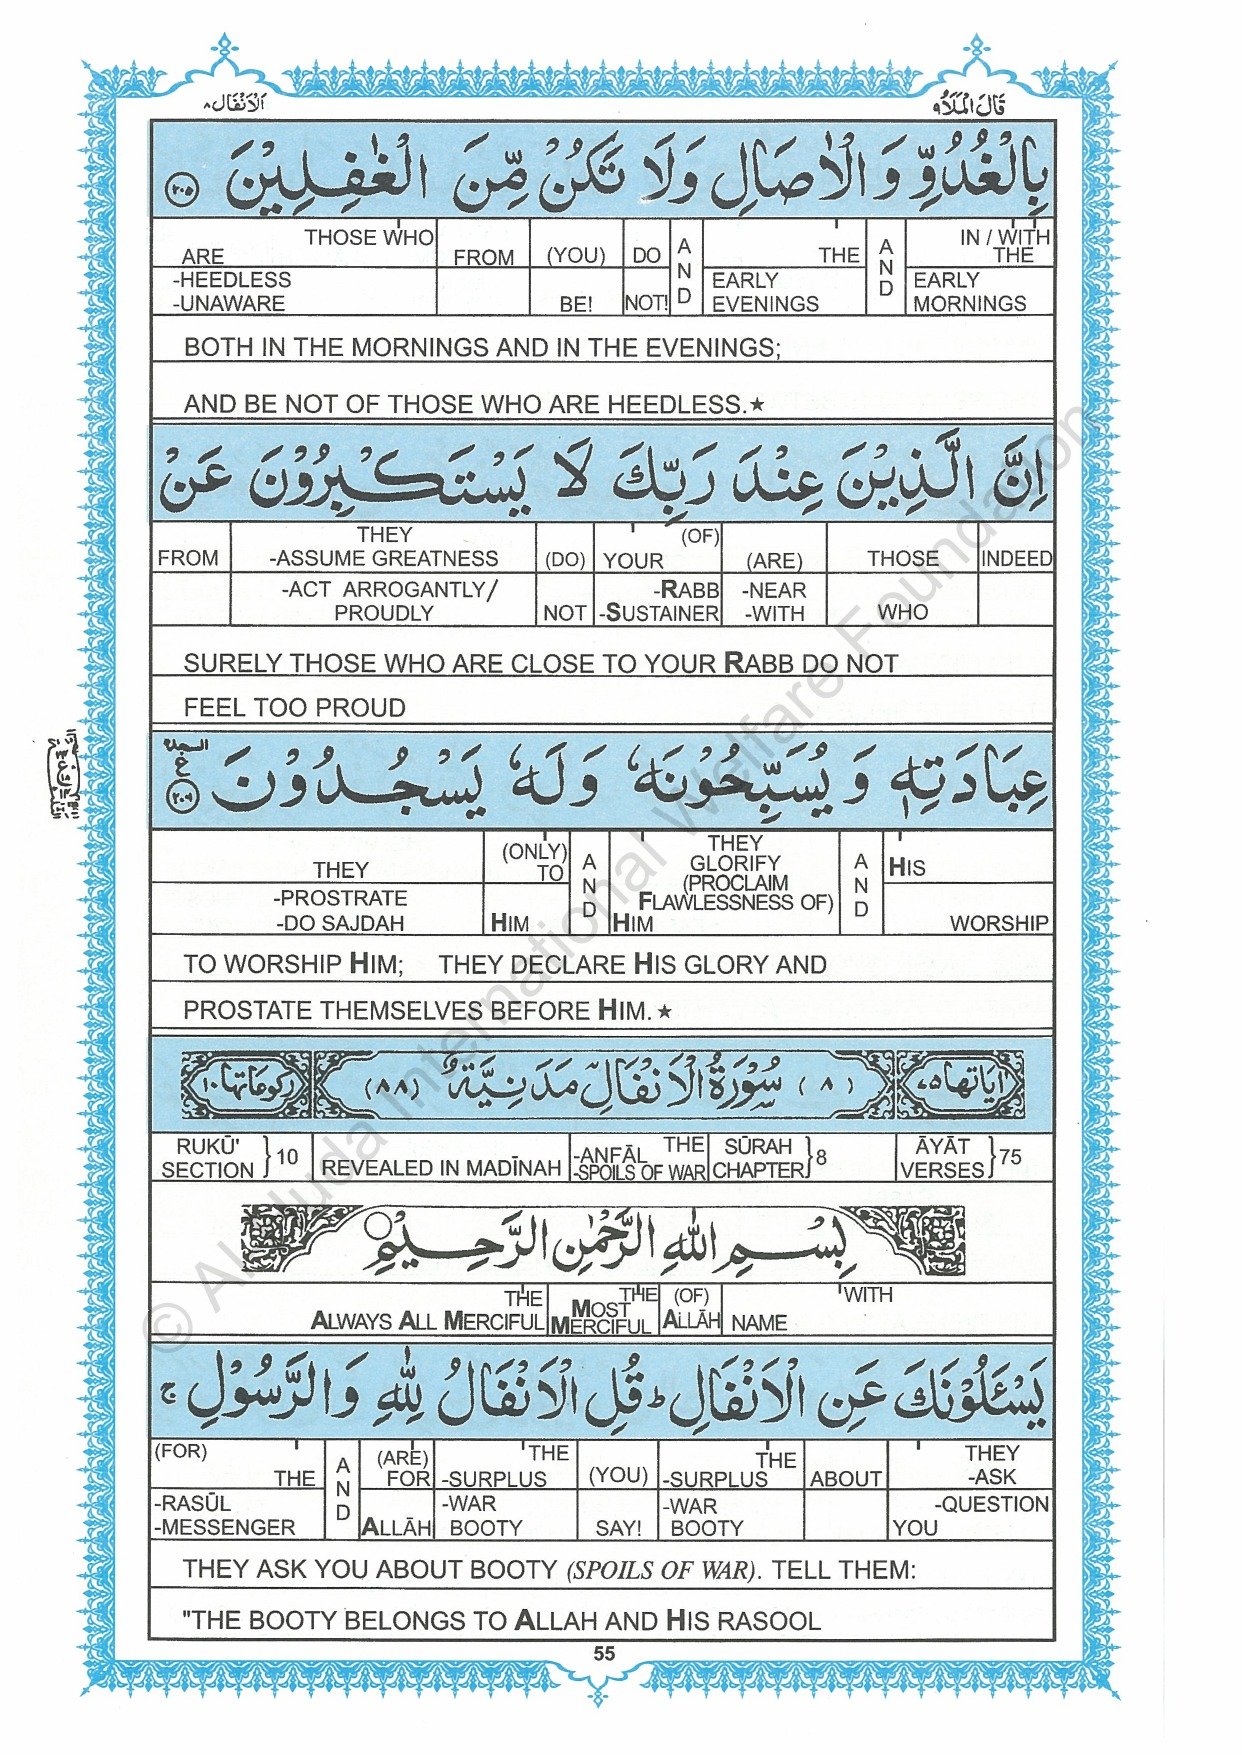 الانفال ٨
قال الملأ ٩
بِالْغُدُوِّ وَالْاٰصَالِ وَلَا تَكُنْ مِّنَ الْغٰفِلِيْنَ ٢٠٥
IN / WITH THE EARLY MORNINGS AND THE EARLY EVENINGS AND DO NOT! (YOU) BE! FROM THOSE WHO ARE -HEEDLESS -UNAWARE
BOTH IN THE MORNINGS AND IN THE EVENINGS;
AND BE NOT OF THOSE WHO ARE HEEDLESS.★
اِنَّ الَّذِيْنَ عِنْدَ رَبِّكَ لَا يَسْتَكْبِرُوْنَ عَنْ
INDEED THOSE WHO (ARE) -NEAR -WITH (OF) YOUR -RABB -SUSTAINER (DO) NOT THEY -ASSUME GREATNESS -ACT ARROGANTLY/ PROUDLY FROM
SURELY THOSE WHO ARE CLOSE TO YOUR RABB DO NOT
FEEL TOO PROUD
عِبَادَتِهٖ وَ يُسَبِّحُوْنَهٗ وَ لَهٗ يَسْجُدُوْنَ ٢٠٦
السجدة
ع
HIS WORSHIP AND THEY GLORIFY (PROCLAIM FLAWLESSNESS OF) HIM AND (ONLY) TO HIM THEY -PROSTRATE -DO SAJDAH
TO WORSHIP HIM; THEY DECLARE HIS GLORY AND
PROSTATE THEMSELVES BEFORE HIM.★
اٰیاتها ٧٥ (٨) سُوْرَةُ الْاَنْفَالِ مَدَنِيَّةٌ (٨٨) ركوعاتها ١٠
ĀYĀT VERSES } 75 SŪRAH CHAPTER } 8 THE -ANFĀL -SPOILS OF WAR REVEALED IN MADĪNAH RUKŪ' SECTION } 10
بِسْمِ اللهِ الرَّحْمٰنِ الرَّحِيْمِ
WITH NAME (OF) ALLĀH THE MOST MERCIFUL THE ALWAYS ALL MERCIFUL
يَسْـَٔلُوْنَكَ عَنِ الْاَنْفَالِ ط قُلِ الْاَنْفَالُ لِلّٰهِ وَالرَّسُوْلِ ج
THEY -ASK -QUESTION YOU ABOUT THE -SURPLUS -WAR BOOTY (YOU) SAY! THE -SURPLUS -WAR BOOTY (ARE) FOR ALLĀH AND (FOR) THE -RASŪL -MESSENGER
THEY ASK YOU ABOUT BOOTY (SPOILS OF WAR). TELL THEM:
"THE BOOTY BELONGS TO ALLAH AND HIS RASOOL
55
© Al-Huda International Welfare Foundation